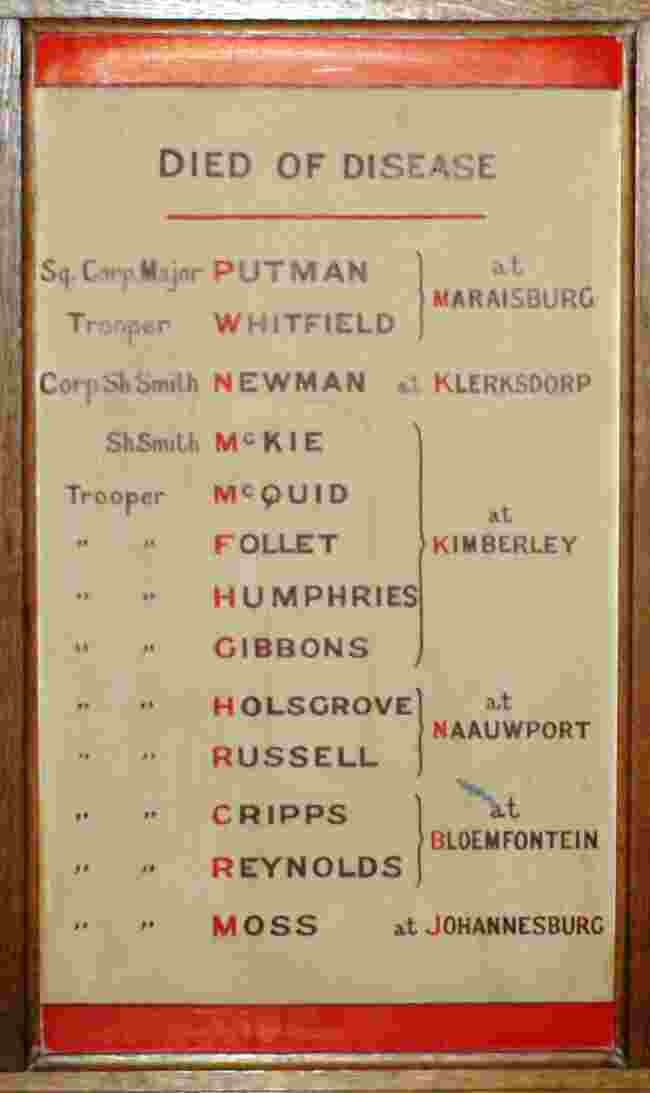 DIED OF DISEASE
Sq. Corp. Major PUTMAN
at
MARAISBURG
Trooper WHITFIELD
Corp Sh Smith NEWMAN at KLERKSDORP
Sh Smith McKIE
Trooper McQUID
at
" " FOLLET KIMBERLEY
" " HUMPHRIES
" " GIBBONS
" " HOLSGROVE at
NAAUWPORT
" " RUSSELL
" " CRIPPS at
BLOEMFONTEIN
" " REYNOLDS
" " MOSS at JOHANNESBURG